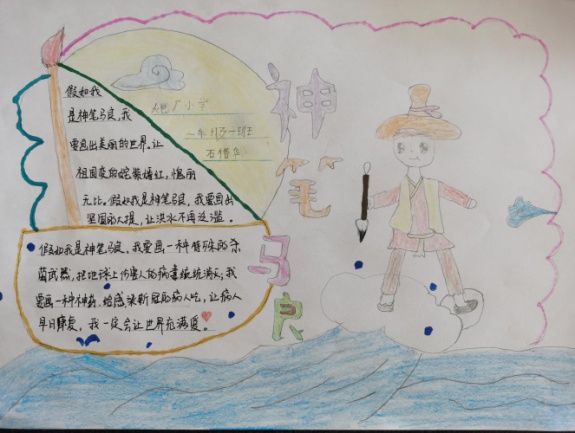 神笔马良
厂小学
一年
班
石
假如我
是神笔马良,我
要画出美丽的世界.让
祖国变的姹紫嫣红,
无比。假如我是神笔马良,我要画出
坚固的大堤,让洪水不再泛滥。
假如我是神笔马良,我要画一种特殊的杀
菌武器,把地球上伤害人的病毒统统消灭;我
要画一种神药给感染新冠的病人吃,让病人
早日康复,我一定会让世界充满爱。